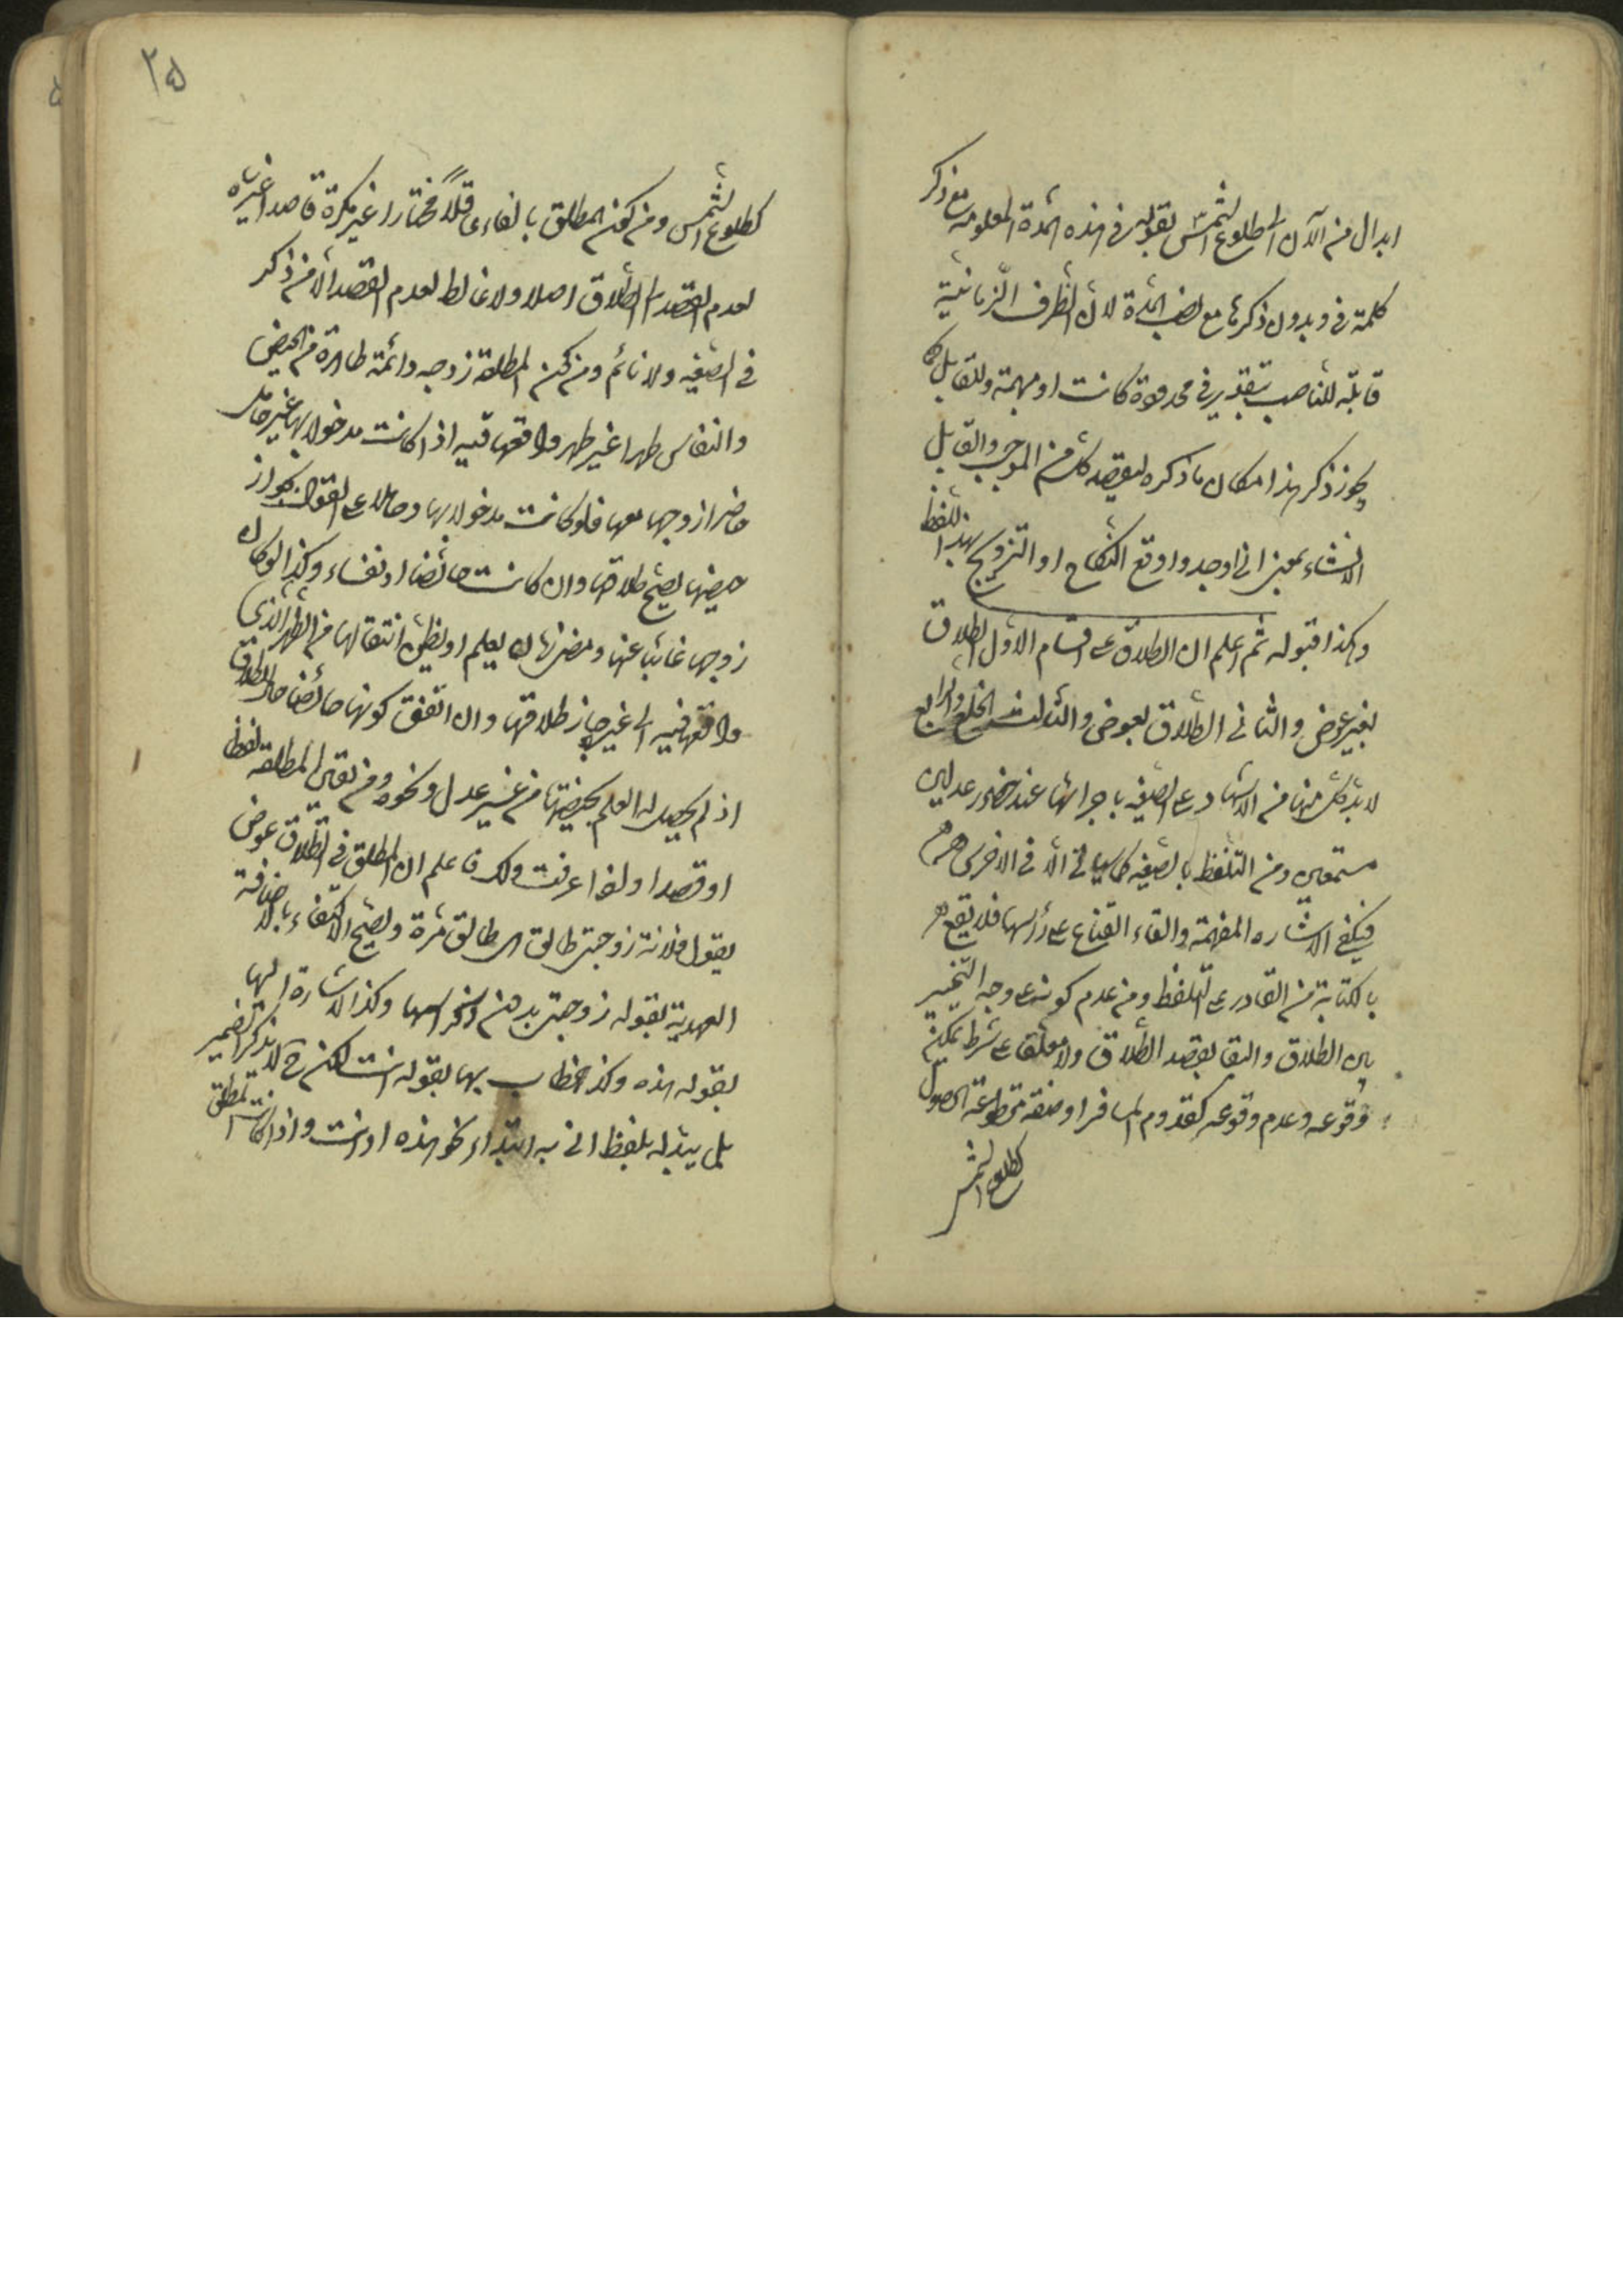 ابدال من الآن الى طلوع الشمس بقوله في هذه المدة المعلومة مع ذكر
كلمة في وبدون ذكرها مع نصب المدة لان الظرف الزمانية
قابلة للنصب بتقدير في محدودة كانت او مبهمة وللقابل
يجوز ذكر هذا مكان ما ذكره ليقصد كل من الموجب والقابل
الانشاء بمعنى اني اوجد واوقع النكاح او التزويج بهذا اللفظ
وهكذا قبوله ثم اعلم ان الطلاق على اقسام الاول الطلاق
بغير عوض والثاني الطلاق بعوض والثالث الخلع والرابع
لا بد كل منها من الاشهاد على الصيغه باجرائها عند حضور عدلين
مستمعين ومن التلفظ بالصيغه كما سياتي الا في الاخرس
فيكفي الاشاره المفهمة والقاء القناع على رأسها فلا يقع
بالكتابة من القادر على التلفظ ومن عدم كونه على وجه التخيير
بين الطلاق والبقا بقصد الطلاق ولا معلقا على شرط يمكن
وقوعه وعدم وقوعه كقدوم المسافر او صفة مقطوعة الحصول
كطلوع الشمس
٢۵
كطلوع الشمس ومن كون المطلق بالغا عاقلاً مختارا غير مكره قاصدا غير ساه
لعدم القصد الى الطلاق اصلا ولا غالط لعدم القصد الا من ذكر
في الصيغه ولا نائم ومن كون المطلقة زوجه دائمة طاهرة من الحيض
والنفاس طهرا غير طهر واقعها فيه اذا كانت مدخولا بها غير حامل
حاضرا زوجها معها فلو كانت مدخولا بها وحاملا على القول بجواز
حيضها يصح طلاقها وان كانت حائضا او نفساء وكذا لو كان
زوجها غائبا عنها ومضى زمان يعلم او يظن انتقالها من الطهر الذي
واقعها فيه الى غيره جاز طلاقها وان اتفق كونها حائضا حال الطلاق
اذ لم يحصل له العلم بحيضها من غير عدل ونحوه ومن تعين المطلقه لفظا
او قصدا ولذا عرفت ذلك فاعلم ان المطلق في الطلاق عوض
يقول فلانة زوجتي طالق الى طالق مرة ويصح الاكتفاء بالاضافة
العهدية بقوله زوجتي بدون ذكر اسمها وكذا الاشارة اليها
بقوله هذه وكذا خطاب بها بقوله انت لكن ح لا يذكر الضمير
بل يبدله بلفظ اني به ابتداء نحو هذه او انت واذا كانت المطلق